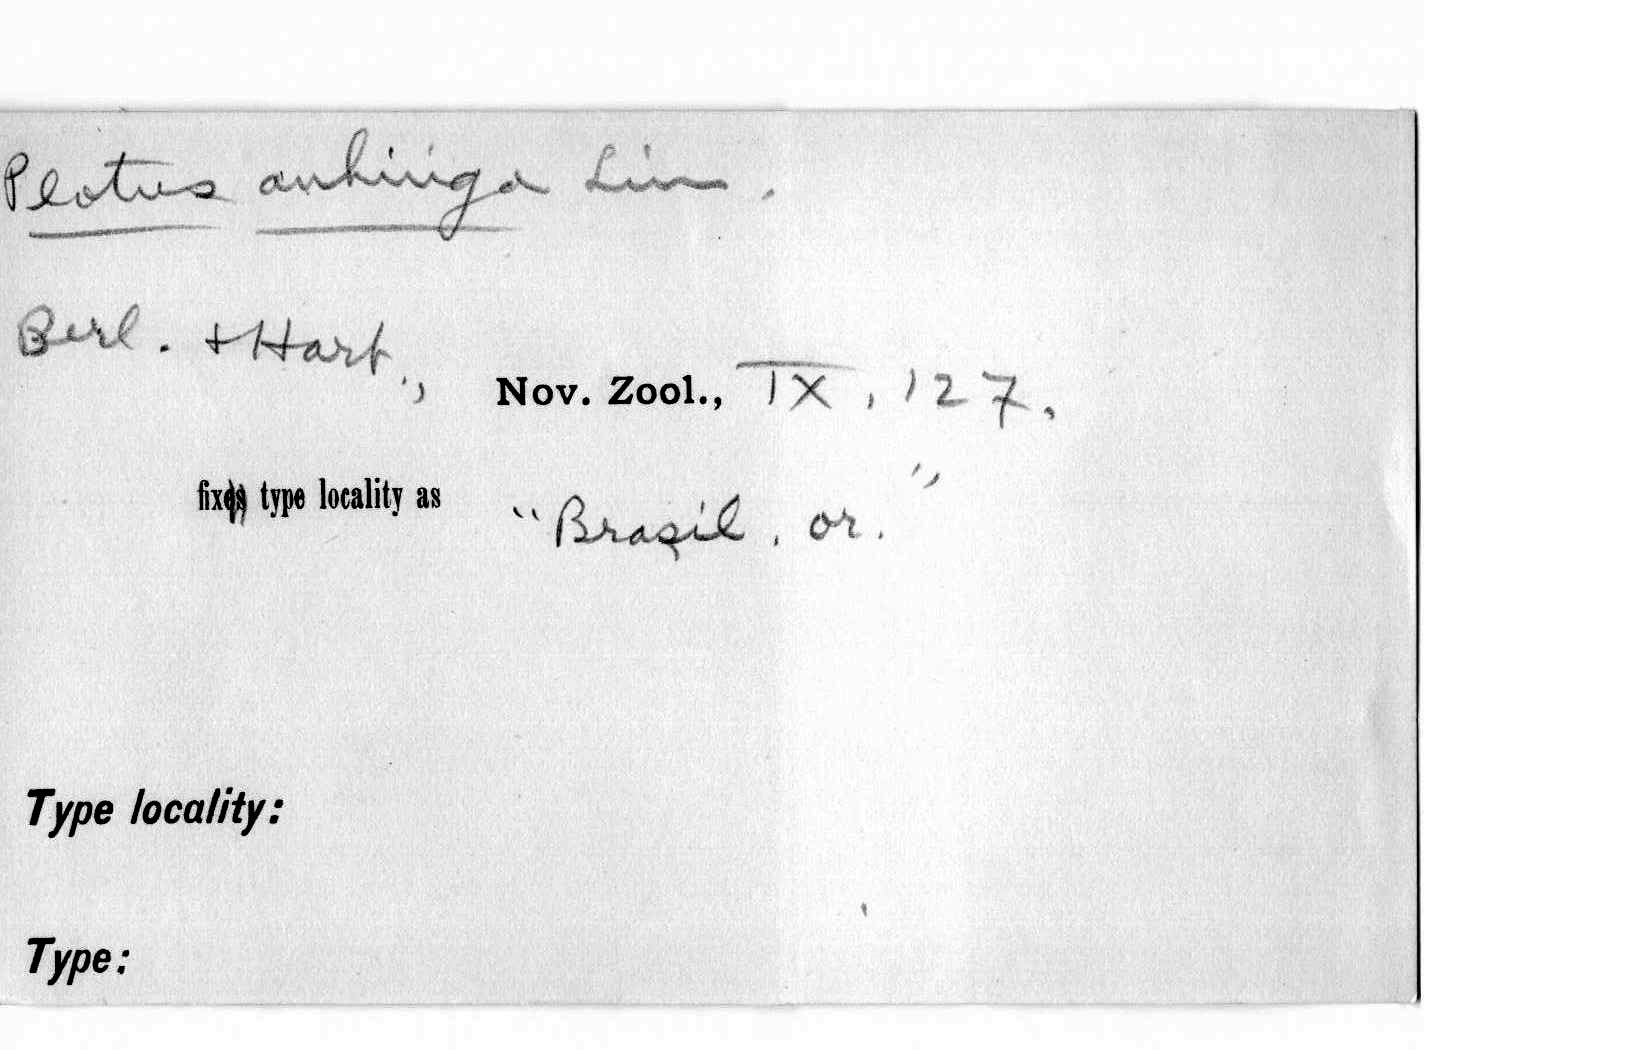 Plotus anhinga Linn.
Berl. & Hart., Nov. Zool., IX, 127,
fix type locality as "Brasil. or."
Type locality:
Type: